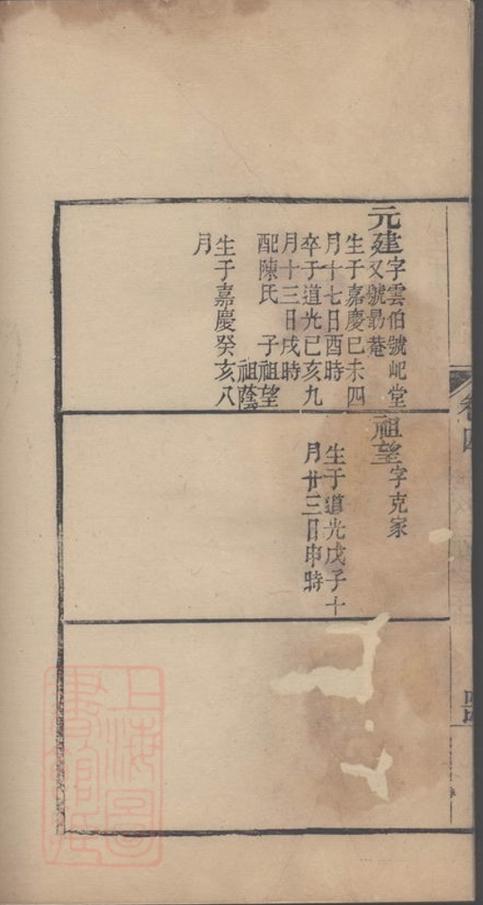 元建字雲伯號屺堂
又號勗菴
生于嘉慶己未四
月十七日酉時
卒于道光己亥九
月十三日戌時
配陳氏 子祖望
祖蔭
生于嘉慶癸亥八
月
祖望字克家
生于道光戊子十
月廿三日申時
卷四
上海圖
書館藏